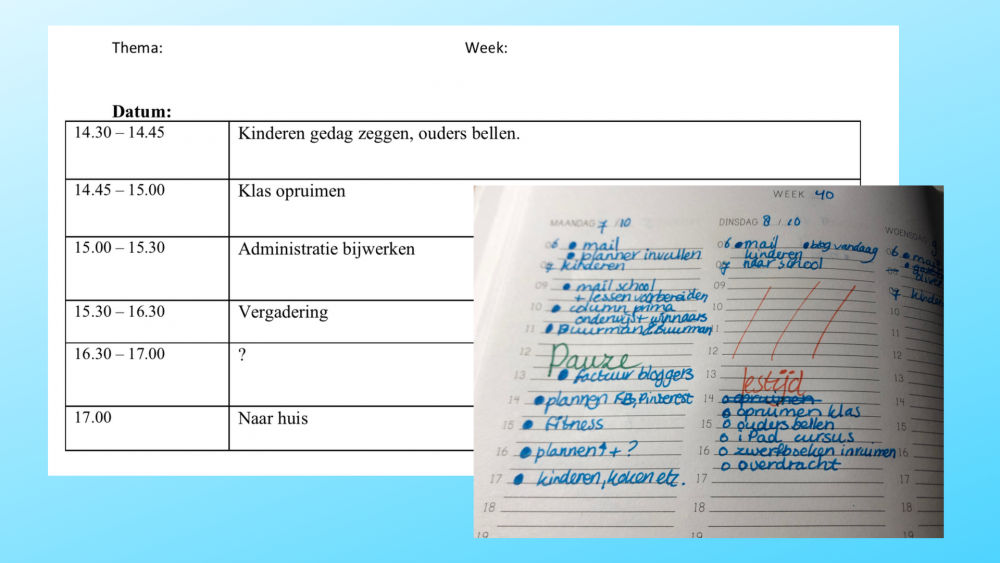 Thema: Week:
Datum:
14.30 – 14.45 Kinderen gedag zeggen, ouders bellen.
14.45 – 15.00 Klas opruimen
15.00 – 15.30 Administratie bijwerken
15.30 – 16.30 Vergadering
16.30 – 17.00 ?
17.00 Naar huis
WEEK 40
MAANDAG 7 / 10
06 • mail
• planner invullen
7 kinderen
09 • mail school
+ lessen voorbereiden
10 • column prima
onderwijs + winnaars
11 • Buurman&Buurman
12 Pauze
13 • factuur bloggers
14 • plannen FB, Pinterest
15 • fitness
16 • plannen + ?
17 • kinderen, koken etc.
18
19
DINSDAG 8 / 10
06 • mail • blog vandaag
kinderen
07 naar school
09
10
11
12
13 lestijd
14 o opruimen
o opruimen klas
15 o ouders bellen
o iPad cursus
16 o zwerfboeken inruimen
o overdracht
17
18
WOENSDAG 9
06 • mail
7 kinder
10
11
12
13
14
15
16
17
18